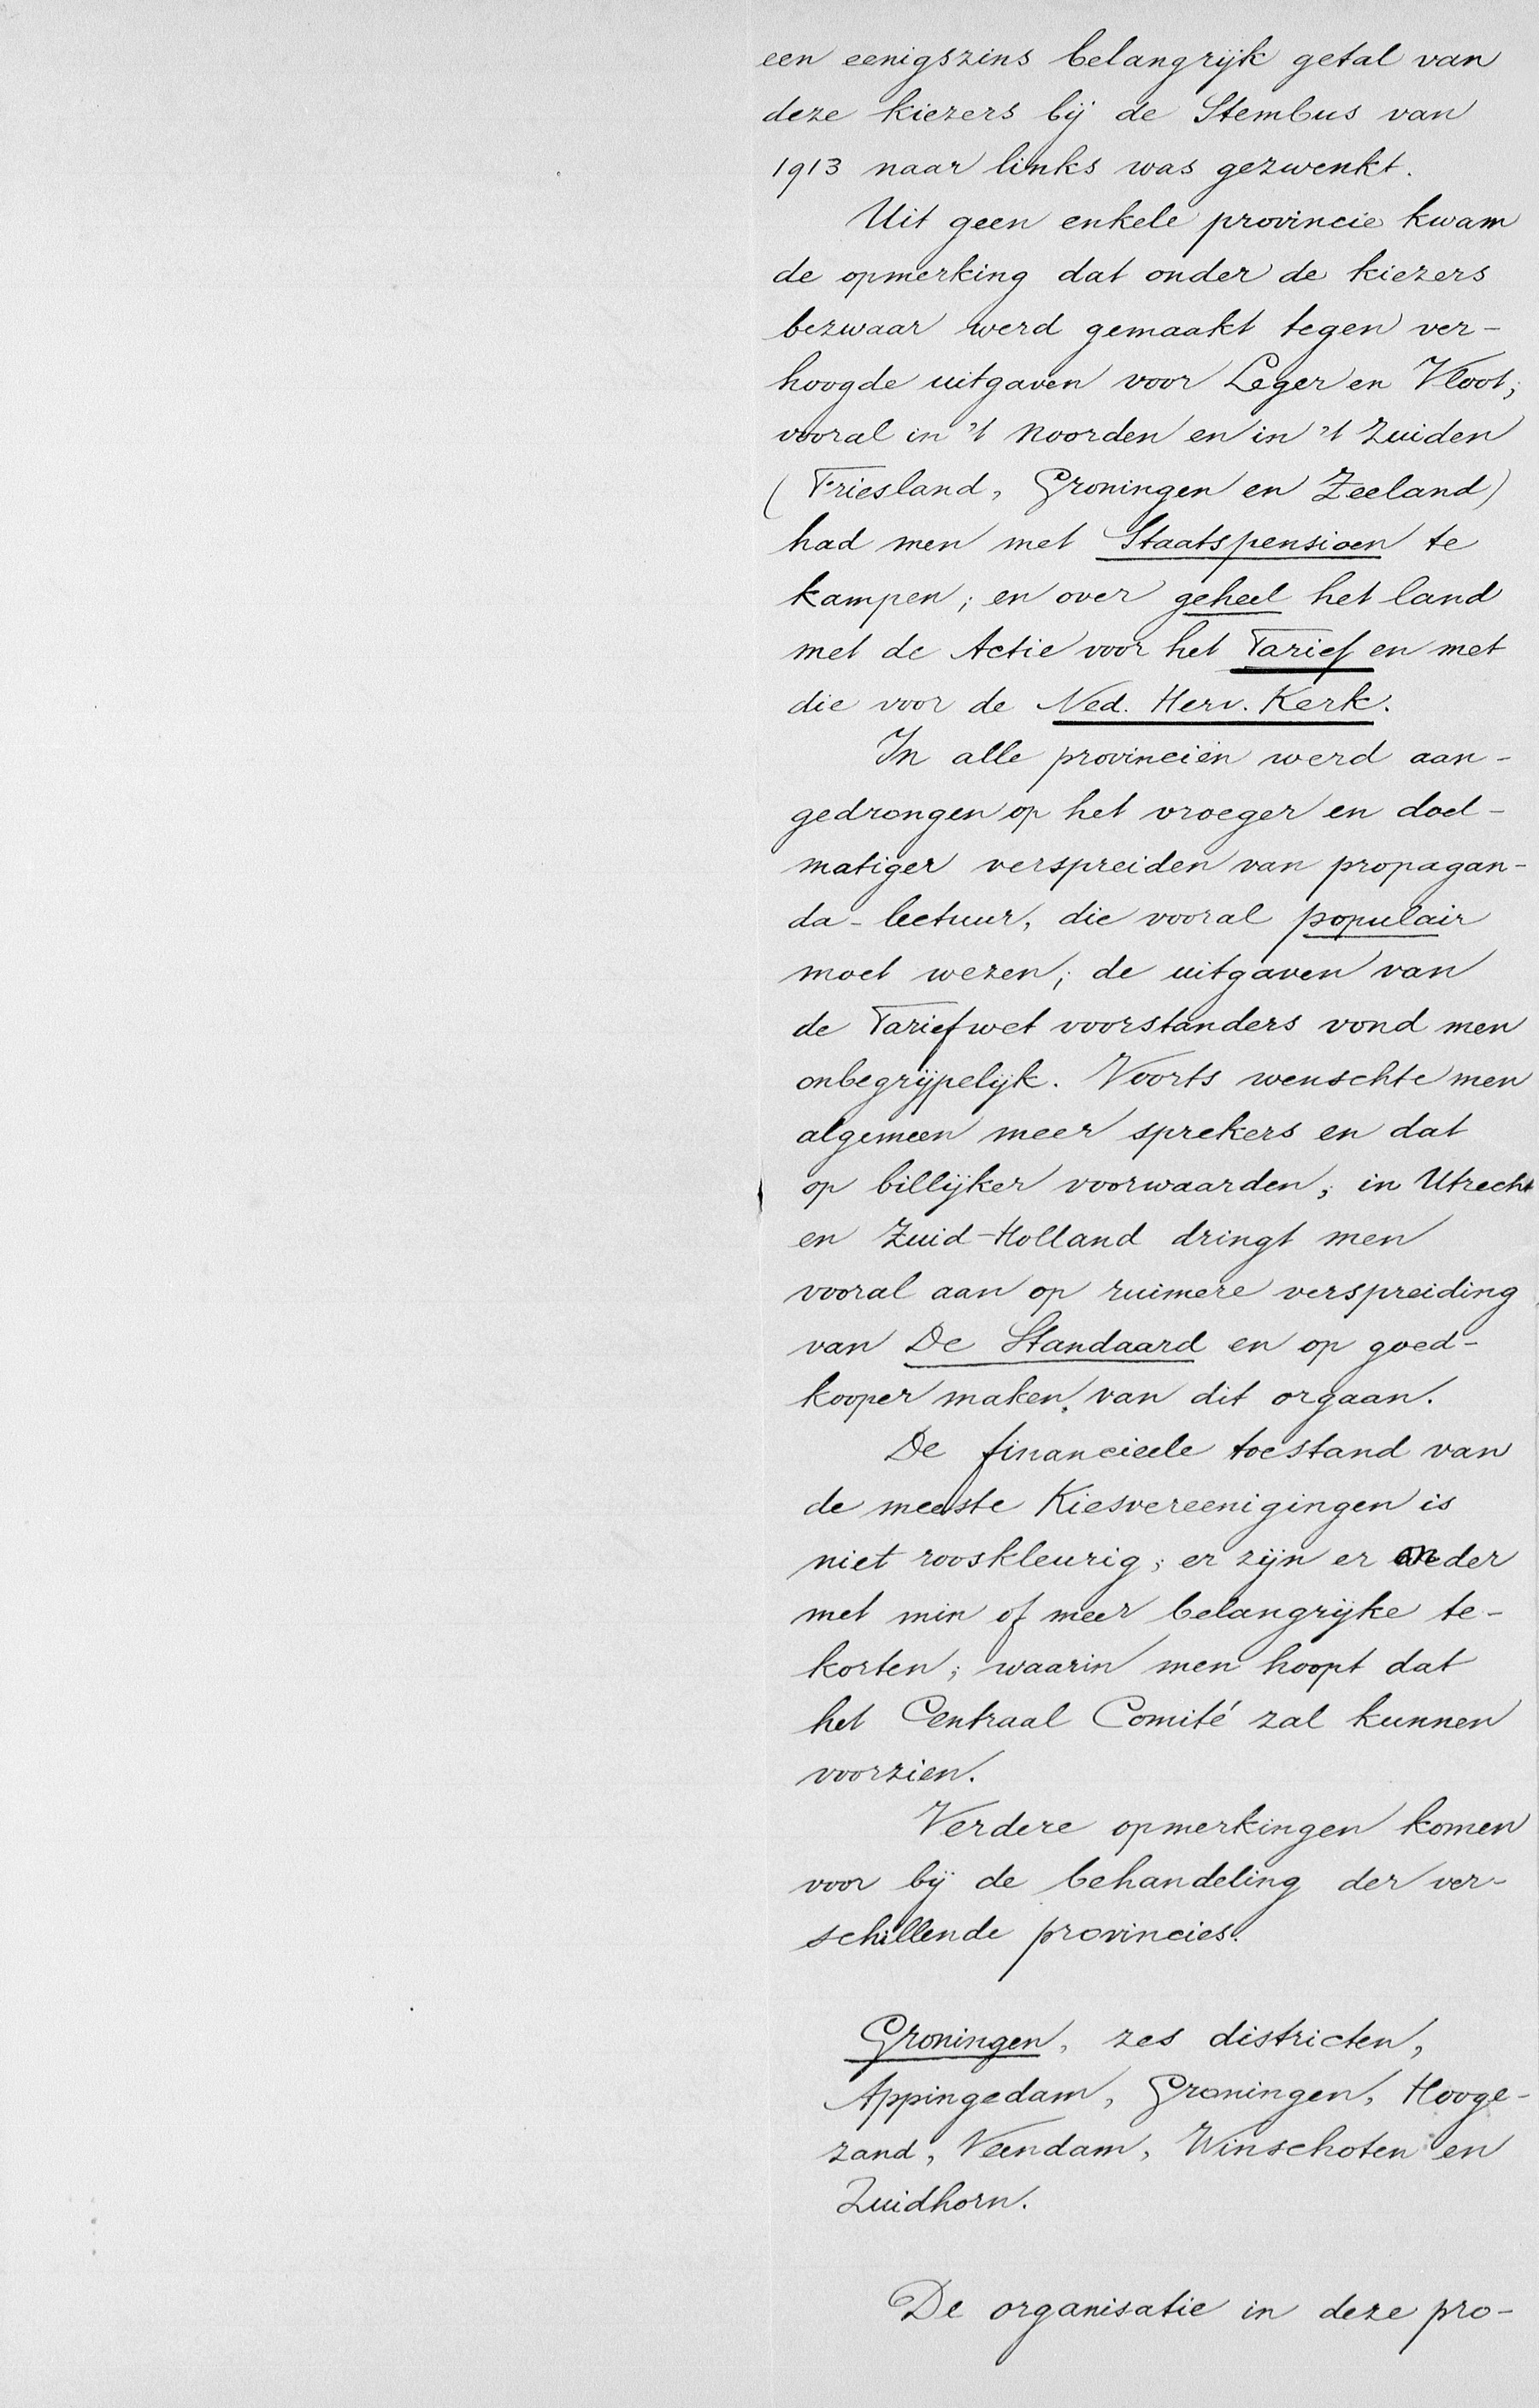 een eenigszins belangrijk getal van
deze kiezers bij de Stembus van
1913 naar links was gezwenkt.
Uit geen enkele provincie kwam
de opmerking dat onder de kiezers
bezwaar werd gemaakt tegen ver-
hoogde uitgaven voor Leger en Vloot;
vooral in 't Noorden en in 't Zuiden
(Friesland, Groningen en Zeeland)
had men met Staatspensioen te
kampen; en over geheel het land
met de Actie voor het Tarief en met
die voor de Ned. Herv. Kerk.
In alle provinciën werd aan-
gedrongen op het vroeger en doel-
matiger verspreiden van propagan-
da-lectuur, die vooral populair
moet wezen; de uitgaven van
de Tariefwet voorstanders vond men
onbegrijpelijk. Voorts wenschte men
algemeen meer sprekers en dat
op billijker voorwaarden; in Utrecht
en Zuid-Holland dringt men
vooral aan op ruimere verspreiding
van De Standaard en op goed-
kooper maken van dit orgaan.
De financieele toestand van
de meeste Kiesvereenigingen is
niet rooskleurig; er zijn er onder
met min of meer belangrijke te-
korten; waarin men hoopt dat
het Centraal Comité zal kunnen
voorzien.
Verdere opmerkingen komen
voor bij de behandeling der ver-
schillende provincies.
Groningen, zes districten,
Appingedam, Groningen, Hooge-
zand, Veendam, Winschoten en
Zuidhorn.
De organisatie in deze pro-